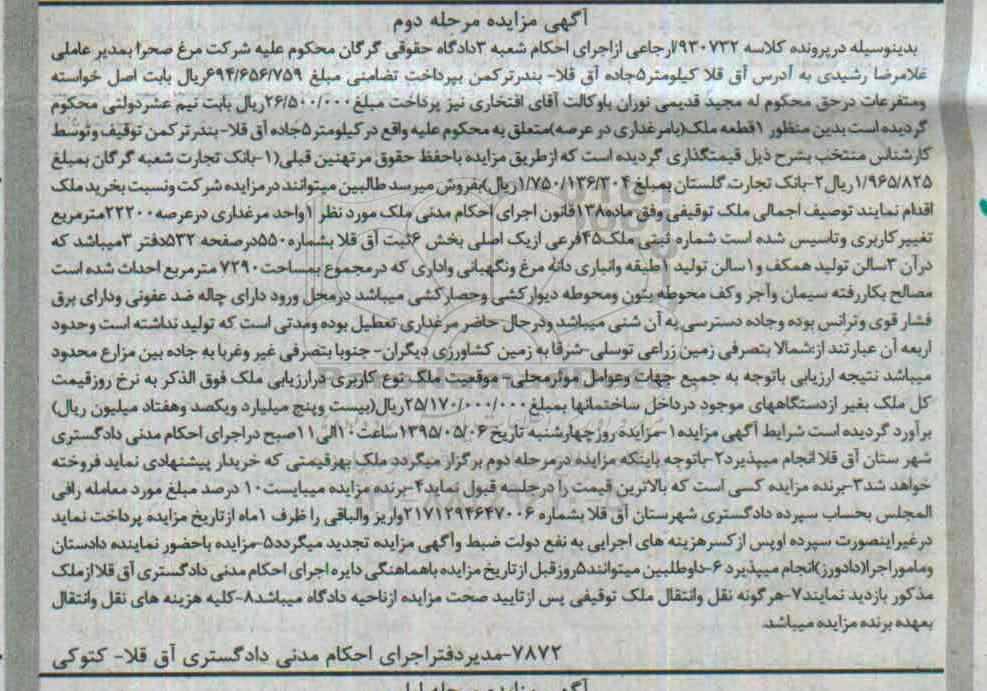 آگهی مزایده مرحله دوم
بدینوسیله درپرونده کلاسه ۹۳۰۷۳۲/ارجاعی ازاجرای احکام شعبه ۳دادگاه حقوقی گرگان محکوم علیه شرکت مرغ صحرا بمدیر عاملی
غلامرضا رشیدی به آدرس آق قلا کیلومتر۵جاده آق قلا- بندرترکمن بپرداخت تضامنی مبلغ ۶۹۴/۶۵۶/۷۵۹ریال بابت اصل خواسته
ومتفرعات درحق محکوم له مجید قدیمی نوران باوکالت آقای افتخاری نیز پرداخت مبلغ۲۶/۵۰۰/۰۰۰ریال بابت نیم عشردولتی محکوم
گردیده است بدین منظور ۱قطعه ملک(بامرغداری در عرصه)متعلق به محکوم علیه واقع درکیلومتر۵جاده آق قلا-بندرترکمن توقیف وتوسط
کارشناس منتخب بشرح ذیل قیمتگذاری گردیده است که ازطریق مزایده باحفظ حقوق مرتهنین قبلی(۱-بانک تجارت شعبه گرگان بمبلغ
۱/۹۶۵/۸۲۵ریال۲-بانک تجارت گلستان بمبلغ۱/۷۵۰/۱۳۶/۳۰۴ریال)بفروش میرسد طالبین میتوانند درمزایده شرکت ونسبت بخرید ملک
اقدام نمایند توصیف اجمالی ملک توقیفی وفق ماده۱۳۸قانون اجرای احکام مدنی ملک مورد نظر ۱واحد مرغداری درعرصه۲۲۲۰۰مترمربع
تغییرکاربری وتاسیس شده است شماره ثبتی ملک۴۵فرعی ازیک اصلی بخش ۶ثبت آق قلا بشماره۵۵۰درصفحه ۵۳۲دفتر ۳میباشد که
درآن ۳سالن تولید همکف و۱سالن تولید ۱طبقه وانباری دانه مرغ ونگهبانی واداری که درمجموع بمساحت۷۲۹۰ مترمربع احداث شده است
مصالح بکاررفته سیمان وآجر وکف محوطه بتون ومحوطه دیوارکشی وحصارکشی میباشد درمحل ورود دارای چاله ضد عفونی ودارای برق
فشار قوی وترانس بوده وجاده دسترسی به آن شنی میباشد ودرحال حاضر مرغداری تعطیل بوده ومدتی است که تولید نداشته است وحدود
اربعه آن عبارتند از:شمالا بتصرفی زمین زراعی توسلی-شرقا به زمین کشاورزی دیگران- جنوبا بتصرفی غیر وغربا به جاده بین مزارع محدود
میباشد نتیجه ارزیابی باتوجه به جمیع جهات وعوامل موثرمحلی- موقعیت ملک نوع کاربری درارزیابی ملک فوق الذکر به نرخ روزقیمت
کل ملک بغیر ازدستگاههای موجود درداخل ساختمانها بمبلغ۲۵/۱۷۰/۰۰۰/۰۰۰ریال(بیست وپنج میلیارد ویکصد وهفتاد میلیون ریال)
برآورد گردیده است شرایط آگهی مزایده۱-مزایده روزچهارشنبه تاریخ ۱۳۹۵/۰۵/۰۶ساعت۱۰الی۱۱صبح دراجرای احکام مدنی دادگستری
شهر ستان آق قلا انجام میپذیرد۲-باتوجه باینکه مزایده درمرحله دوم برگزار میگردد ملک بهرقیمتی که خریدار پیشنهادی نماید فروخته
خواهد شد۳-برنده مزایده کسی است که بالاترین قیمت را درجلسه قبول نماید۴-برنده مزایده میبایست۱۰ درصد مبلغ مورد معامله رافی
المجلس بحساب سپرده دادگستری شهرستان آق قلا بشماره ۲۱۷۱۲۹۴۶۴۷۰۰۶واریز والباقی را ظرف ۱ماه ازتاریخ مزایده پرداخت نماید
درغیراینصورت سپرده اوپس ازکسرهزینه های اجرایی به نفع دولت ضبط وآگهی مزایده تجدید میگردد۵-مزایده باحضور نماینده دادستان
ومامور اجرا(دادورز)انجام میپذیرد۶-داوطلبین میتوانند۵روز قبل ازتاریخ مزایده باهماهنگی دایره اجرای احکام مدنی دادگستری آق قلا ازملک
مذکور بازدید نمایند۷-هرگونه نقل وانتقال ملک توقیفی پس ازتایید صحت مزایده ازناحیه دادگاه میباشد۸-کلیه هزینه های نقل وانتقال
بعهده برنده مزایده میباشد.
۷۸۷۲-مدیردفتراجرای احکام مدنی دادگستری آق قلا- کتوکی